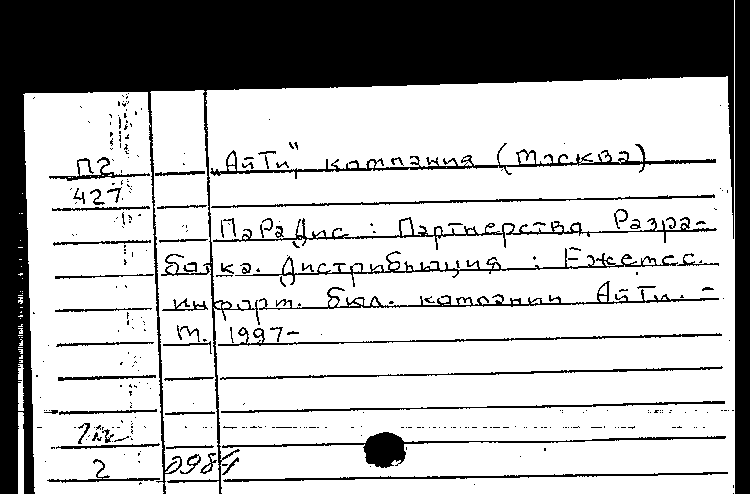 П2 „АйТи", компания (Москва)
427
ПаРаДис : Партнерства. Разра-
ботка. Дистрибьюция : Ежемес.
информ. бюл. компании АйТи. –
М., 1997–
2 0984